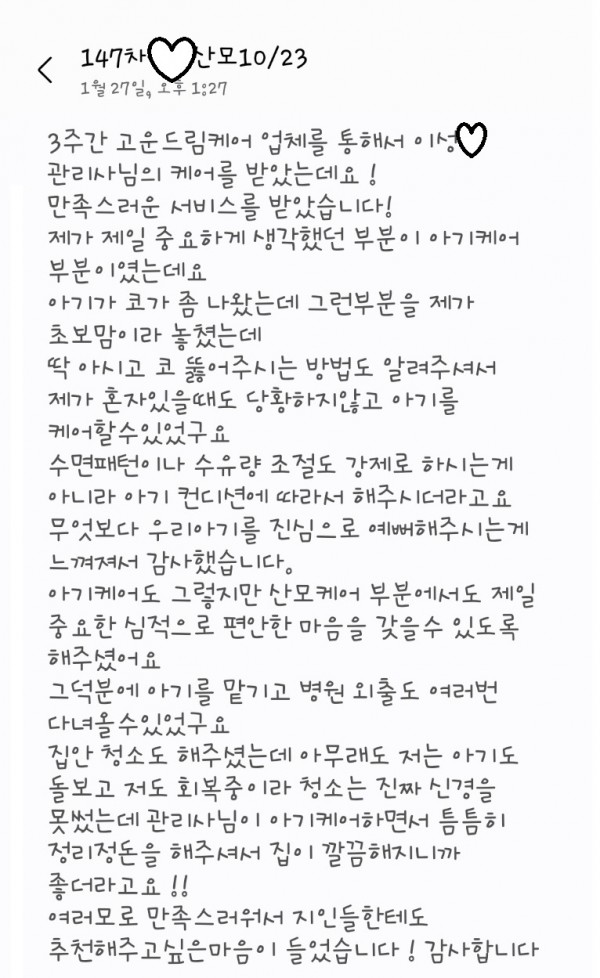 147차 산모10/23
1월 27일, 오후 1:27
3주간 고운드림케어 업체를 통해서 이성
관리사님의 케어를 받았는데요!
만족스러운 서비스를 받았습니다!
제가 제일 중요하게 생각했던 부분이 아기케어
부분이였는데요
아기가 코가 좀 나왔는데 그런부분을 제가
초보맘이라 놓쳤는데
딱 아시고 코 뚫어주시는 방법도 알려주셔서
제가 혼자있을때도 당황하지않고 아기를
케어할수있었구요
수면패턴이나 수유량 조절도 강제로 하시는게
아니라 아기 컨디션에 따라서 해주시더라고요
무엇보다 우리아기를 진심으로 예뻐해주시는게
느껴져서 감사했습니다.
아기케어도 그렇지만 산모케어 부분에서도 제일
중요한 심적으로 편안한 마음을 갖을수 있도록
해주셨어요
그덕분에 아기를 맡기고 병원 외출도 여러번
다녀올수있었구요
집안 청소도 해주셨는데 아무래도 저는 아기도
돌보고 저도 회복중이라 청소는 진짜 신경을
못썼는데 관리사님이 아기케어하면서 틈틈히
정리정돈을 해주셔서 집이 깔끔해지니까
좋더라고요!!
여러모로 만족스러워서 지인들한테도
추천해주고싶은마음이 들었습니다! 감사합니다